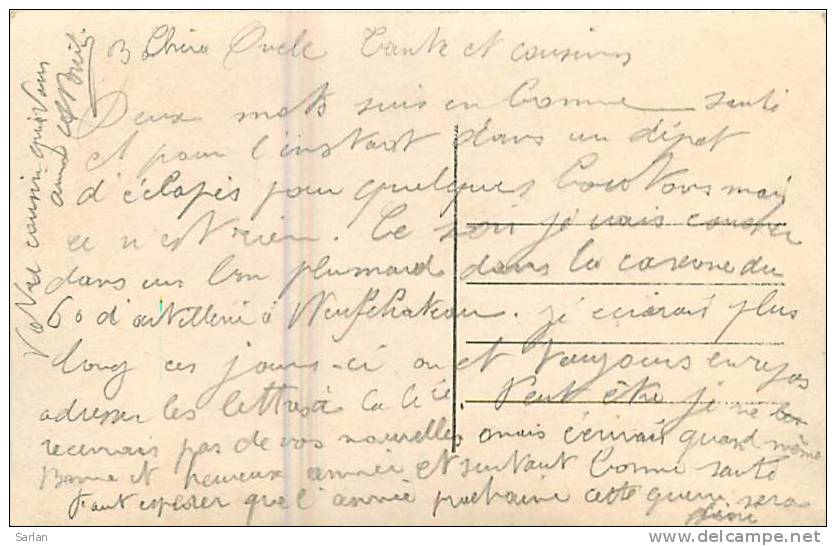 Chers Oncle Tante et cousins
Deux mots suis en bonne santé
et pour l'instant dans un dépot
d'éclopés pour quelques boutons mais
ce n'est rien. Ce soir je vais coucher
dans un bon plumard dans la caserne du
60 d'artillerie à Neufchateau. j'écrirai plus
long ces jours-ci on est toujours en repos
adresser les lettres à la Cie. Peut être je ne
recevrais pas de vos nouvelles mais écrirait quand même
Bonne et heureux année et surtout bonne santé
Faut espérer que l'année prochaine cette guerre sera
finie
Votre cousin qui vous
aime
Sarlan
www.delcampe.net